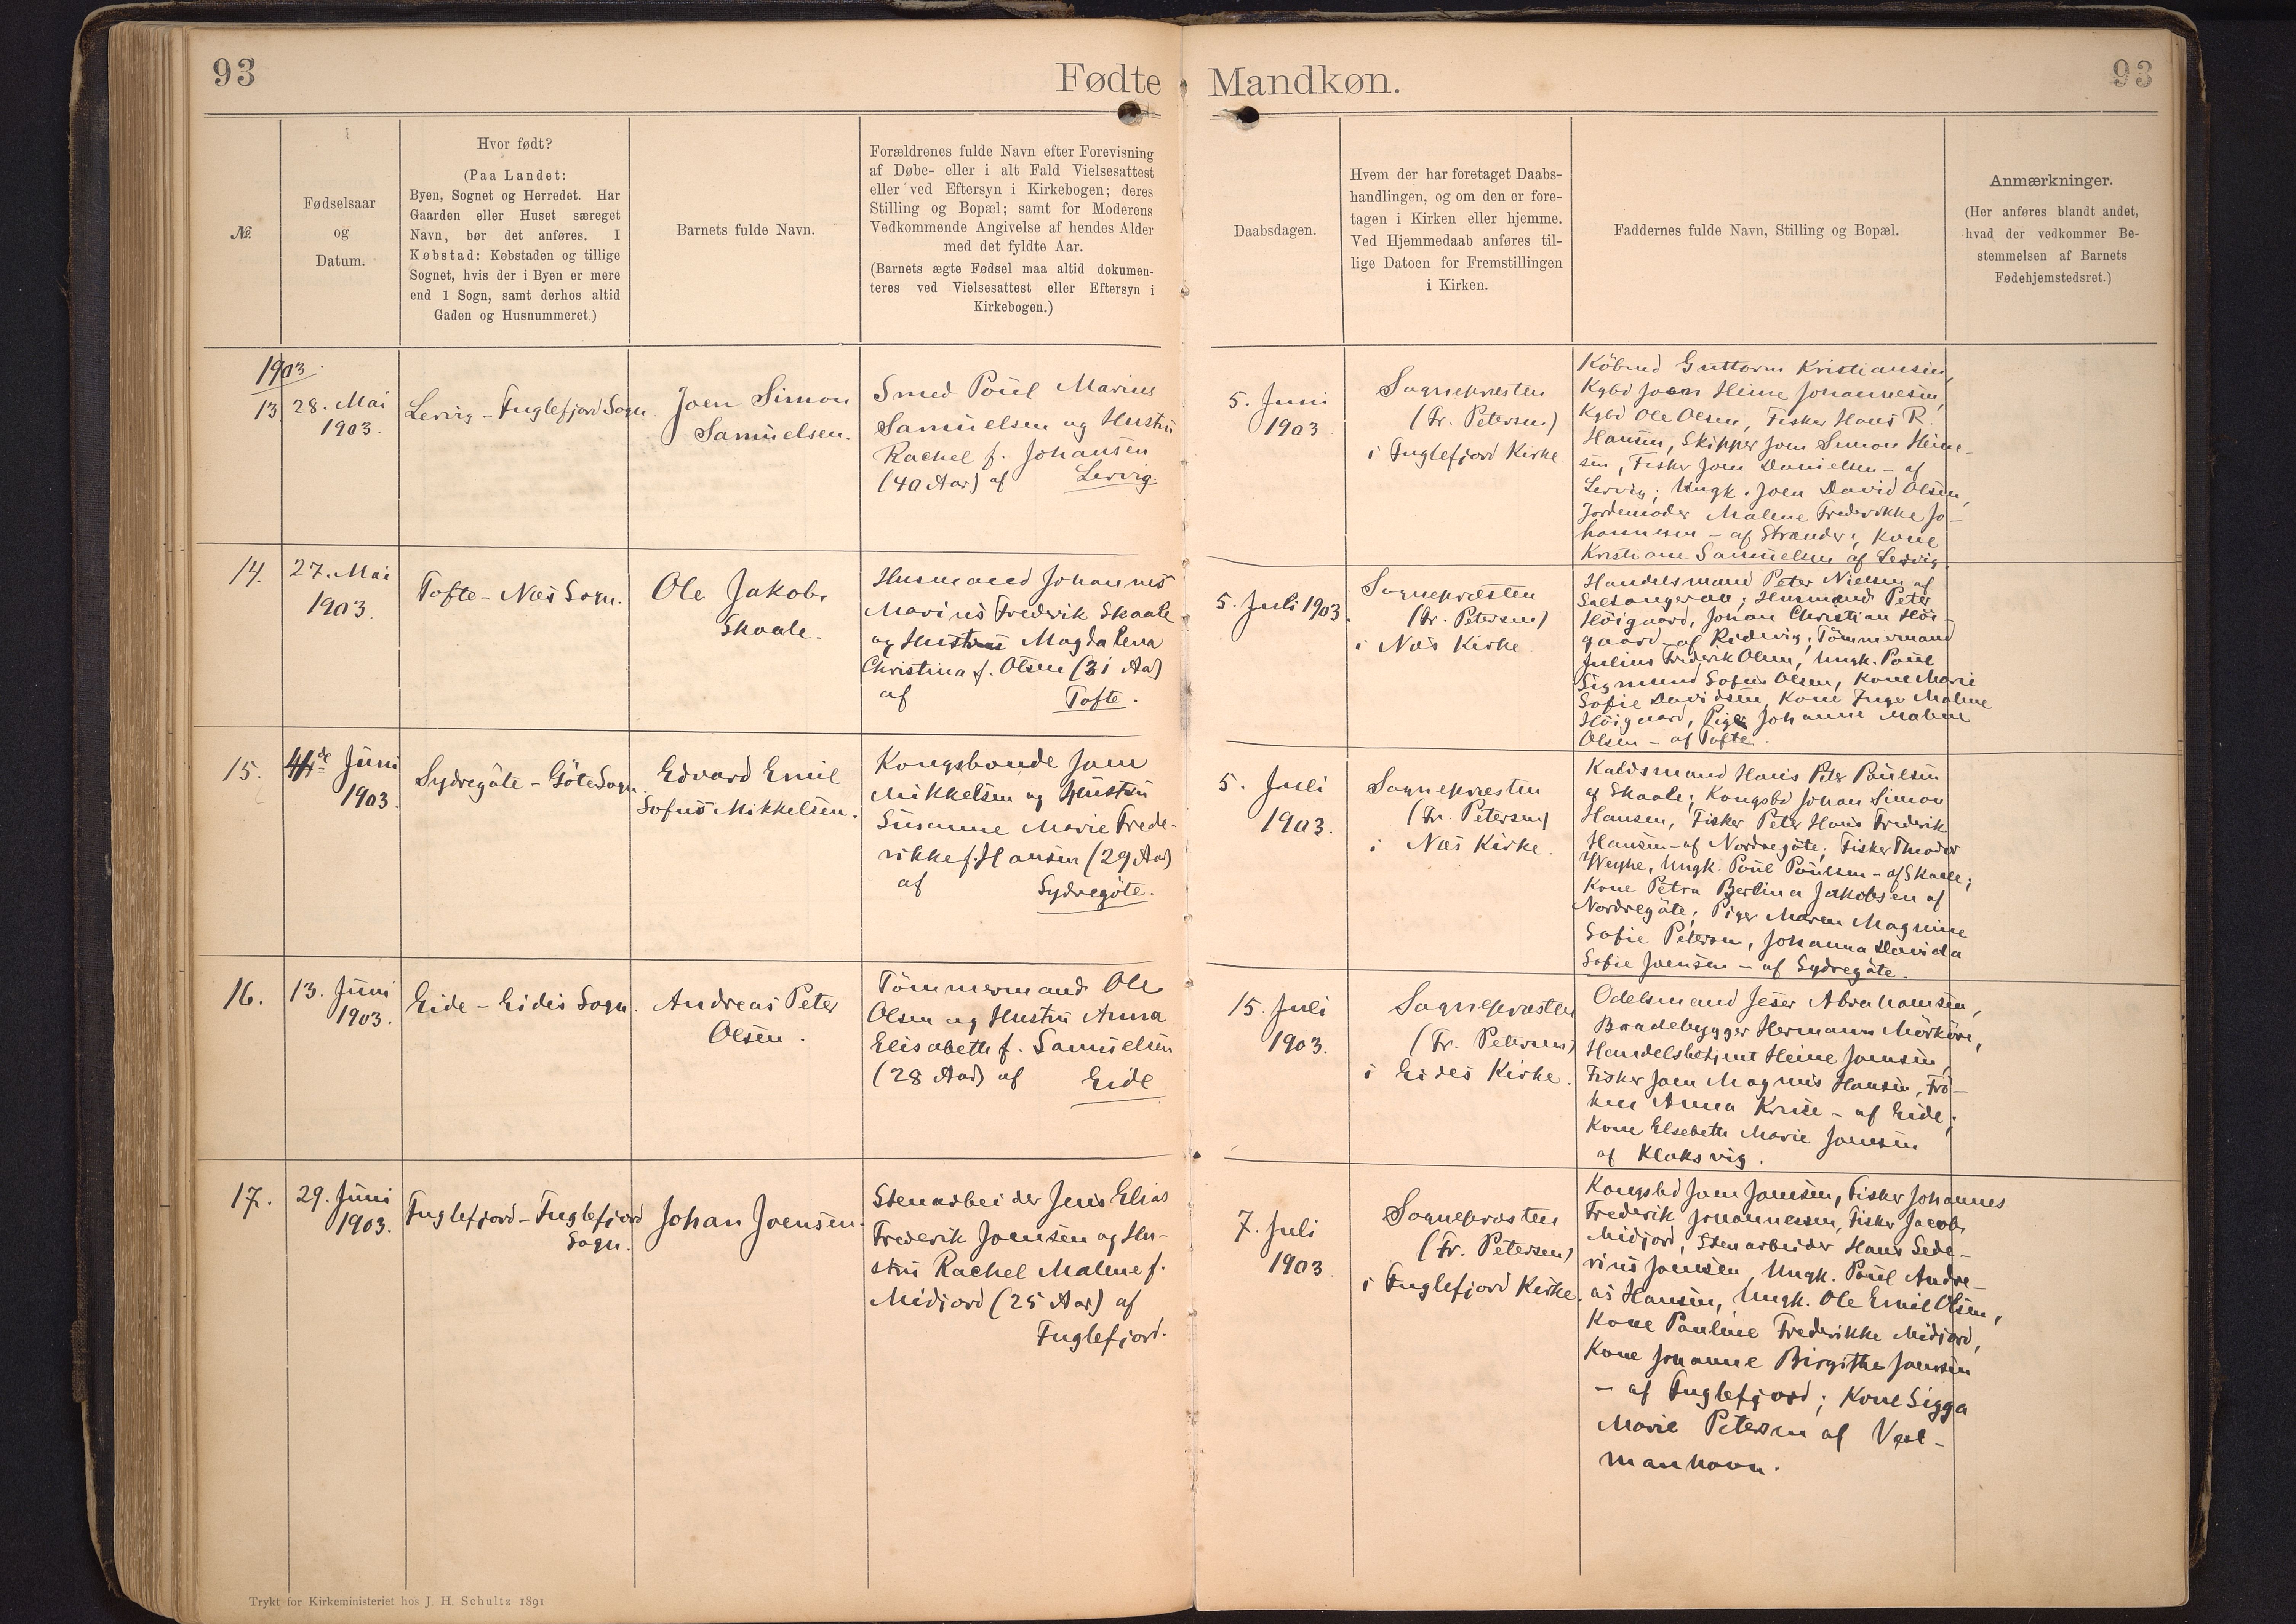 93
Fødte
Mandkøn.
93
№.
Fødselsaar
og
Datum.
Hvor født?
(Paa Landet:
Byen, Sognet og Herredet. Har
Gaarden eller Huset særeget
Navn, bør det anføres. I
Købstad: Købstaden og tillige
Sognet, hvis der i Byen er mere
end 1 Sogn, samt derhos altid
Gaden og Husnummeret.)
Barnets fulde Navn.
Forældrenes fulde Navn efter Forevisning
af Døbe- eller i alt Fald Vielsesattest
eller ved Eftersyn i Kirkebogen; deres
Stilling og Bopæl; samt for Moderens
Vedkommende Angivelse af hendes Alder
med det fyldte Aar.
(Barnets ægte Fødsel maa altid dokumen-
teres ved Vielsesattest eller Eftersyn i
Kirkebogen.)
Daabsdagen.
Hvem der har foretaget Daabs-
handlingen, og om den er fore-
tagen i Kirken eller hjemme.
Ved Hjemmedaab anføres til-
lige Datoen for Fremstillingen
i Kirken.
Faddernes fulde Navn, Stilling og Bopæl.
Anmærkninger.
(Her anføres blandt andet,
hvad der vedkommer Be-
stemmelsen af Barnets
Fødehjemstedsret.)
1903.
13
28. Mai
1903.
Lervig - Fuglefjord Sogn.
Joen Simon
Samuelsen.
Smed Poul Marius
Samuelsen og Hustru
Rachel f. Johansen
(40 Aar) af Lervig.
5. Juni
1903
Sognepræsten
(Fr. Petersen)
i Fuglefjord Kirke.
Köbmd Guttorm Kristiansen,
Kgbd Joen Heine Johannesen,
Kgbd Ole Olsen, Fisker Hans R.
Hansen, Skipper Joen Simon Heine-
sen, Fisker Joen Danielsen - af
Lervig; Ungk. Joen David Olsen,
Jordemoder Malene Frederikke Jo-
hannesen - af Strænder; Kone
Kristiane Samuelsen af Lervig.
14.
27. Mai
1903.
Tofte - Næs Sogn.
Ole Jakob
Skaale.
Husmand Johannes
Marius Frederik Skaale
og Hustru Magdalena
Christina f. Olsen (31 Aar)
af Tofte.
5. Juli 1903.
Sognepræsten
(Fr. Petersen)
i Næs Kirke.
Handelsmand Peter Nielsen af
Saltangeraa; Husmænd Peter
Höigaard, Johan Christian Höi-
gaard - af Ridevig; Tömmermand
Julius Frederik Olsen, Ungk. Poul
Sigmund Sofus Olsen, Kone Marie
Sofie Davidsen, Kone Inge Malene
Höigaard, Pige Johanne Malene
Olsen - af Tofte.
15.
Juni
1903.
Sydregöte - Göte Sogn.
Edvard Emil
Sofus Mikkelsen.
Kongsbonde Joen
Mikkelsen og Hustru
Susanne Marie Frede-
rikke f. Hansen (29 Aar)
af Sydregöte.
5. Juli
1903.
Sognepræsten
(Fr. Petersen)
i Næs Kirke.
Kaldsmand Hans Peter Poulsen
af Skaale; Kongsbd Johan Simon
Hansen, Fisker Peter Hans Frederik
Hansen - af Nordregöte; Fisker Theodor
Weyhe, Ungk. Poul Poulsen - af Skaale;
Kone Petra Bertina Jakobsen af
Nordregöte; Piger Maren Magnine
Sofie Petersen, Johanna Davida
Sofie Joensen - af Sydregöte.
16.
13. Juni
1903.
Eide - Eides Sogn.
Andreas Peter
Olsen.
Tömmermand Ole
Olsen og Hustru Anna
Elisabeth f. Samuelsen
(28 Aar) af Eide
15. Juli
1903.
Sognepræsten
(Fr. Petersen)
i Eides Kirke.
Odelsmand Jeser Abrahamsen,
Baadebygger Hermann Mörköre,
Handelsbetjent Heine Joensen,
Fisker Joen Magnus Hansen, Frö-
ken Anna Kruse - af Eide;
Kone Elsebeth Marie Joensen
af Klaksvig.
17.
29. Juni
1903.
Fuglefjord - Fuglefjord
Sogn.
Johan Joensen.
Stenarbeider Jens Elias
Frederik Joensen og Hu-
stru Rachel Malene f.
Midjord (25 Aar) af
Fuglefjord.
7. Juli
1903
Sognepræsten
(Fr. Petersen)
i Fuglefjord Kirke.
Kongsbd Joen Joensen, Fisker Johannes
Frederik Johannessen, Fisker Jacob
Midjord, Stenarbeider Hans Sede-
rius Joensen, Ungk. Poul Andre-
as Hansen, Ungk. Ole Emil Olsen,
Kone Pauline Frederikke Midjord,
Kone Johanne Birgithe Joensen
- af Fuglefjord; Kone Sigga
Marie Petersen af Vest-
manhavn.
Trykt for Kirkeministeriet hos J. H. Schultz 1891